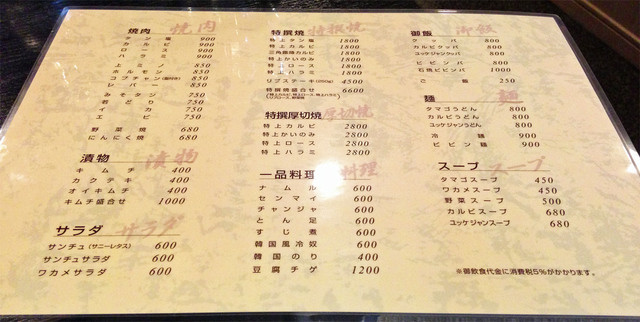 焼肉 焼肉
タン塩 900
カルビ 900
ロース 900
ハラミ 900
上ミノ 850
ホルモン 850
コプチャン(脂付き) 850
レバー 850
みそタン 750
若どり 750
イカ 750
エビ 750
野菜焼 680
にんにく焼 680
漬物 漬物
キムチ 400
カクテキ 400
オイキムチ 400
キムチ盛合せ 1000
サラダ サラダ
サンチュ(サニーレタス) 600
サンチュサラダ 600
ワカメサラダ 600
特撰焼 特撰焼
特上タン塩 1800
特上カルビ 1800
三角霜焼カルビ 1800
特上かいのみ 1800
特上ロース 1800
特上ハラミ 1800
リブステーキ(200g) 4500
特撰焼盛合せ 6600
特撰厚切焼 厚切焼
特上カルビ 2800
特上かいのみ 2800
特上ロース 2800
特上ハラミ 2800
一品料理 料理
ナムル 600
センマイ 600
チャンジャ 600
とん足 600
すじ煮 600
韓国風冷奴 600
韓国のり 400
豆腐チゲ 1200
御飯 御飯
クッパ 800
カルビクッパ 800
ユッケジャンクッパ 800
ビビンバ 800
石焼ビビンバ 1000
ご飯 250
麺 麺
タマゴうどん 800
カルビうどん 800
ユッケジャンうどん 800
冷麺 900
ビビン麺 900
スープ スープ
タマゴスープ 450
ワカメスープ 450
野菜スープ 500
カルビスープ 680
ユッケジャンスープ 680
※御飲食代金に消費税5%がかかります。